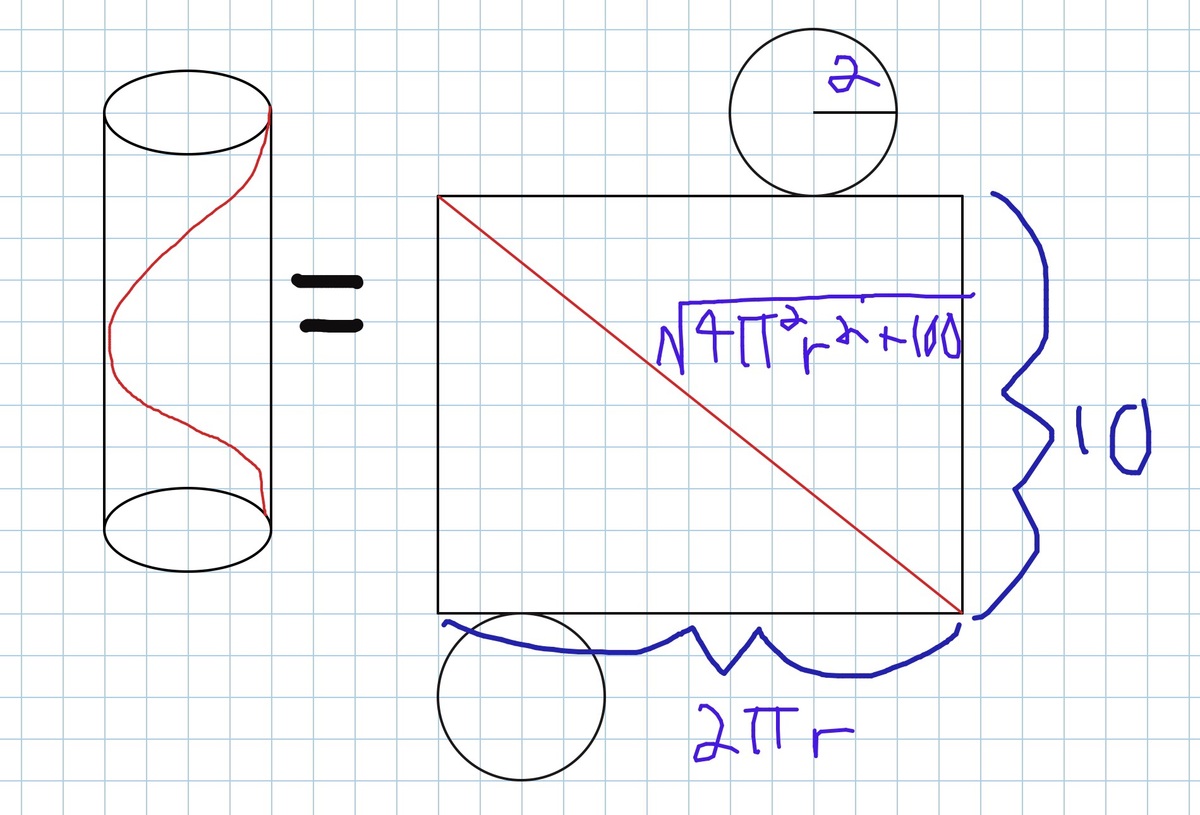 2
=
√4π²r²+100
10
2πr